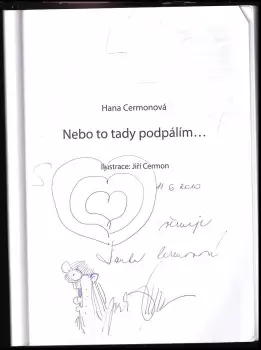 Hana Cermonová
Nebo to tady podpálím…
Ilustrace: Jiří Cermon
11 6 2010
věnuje
Cermonová